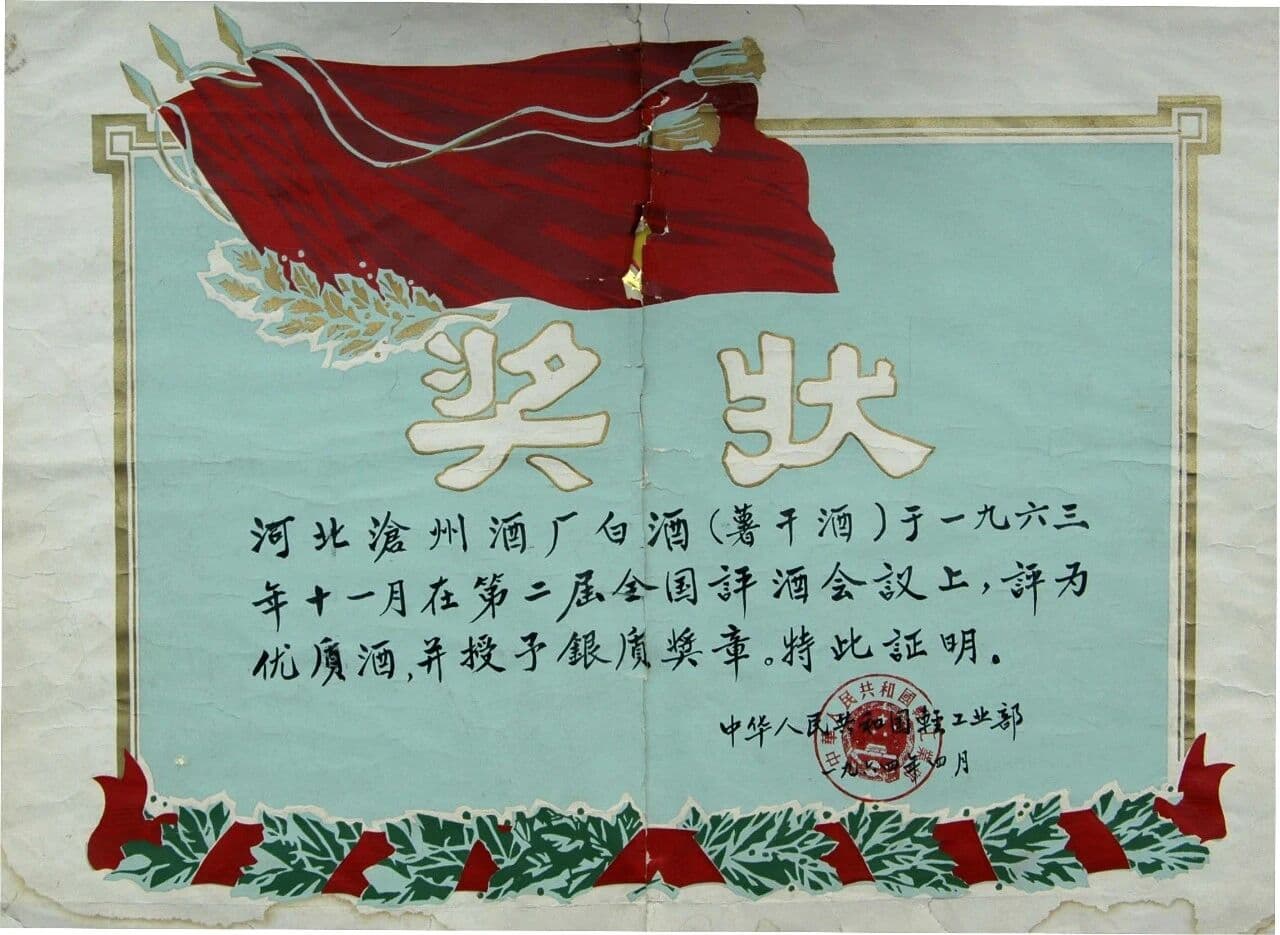 奖状
河北滄州酒厂白酒(薯干酒)于一九六三
年十一月在第二届全国評酒会议上,評为
优质酒,并授予銀质奬章。特此証明.
中华人民共和国轻工业部
一九六四年四月
中華人民共和國